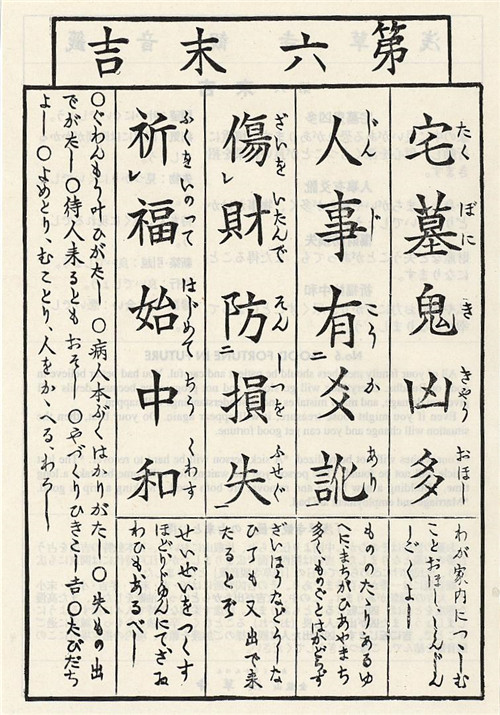 第六末吉
宅墓鬼凶多
たく ぼに き きやう おほ
わが家内につゝしむ
ことおほし、しんじん
しどくよし
人事有二爻訛一
じん じ こう か あり
もののたゝりあるゆ
へにまちがひあやまち
多くものごとはかどらず
傷レ財防二損失一
ざいを いたんで そん しつを ふせぐ
ざいほうなどうしな
ひても又出で来
たるとぞ
祈レ福始中和
ふくを いのって はじめて ちう くわす
せいぜいをつくす
わひもあるべし
○ぐわんもう叶ひがたし ○病人本ぶくはかりがたし ○失もの出
でがたし ○待人来るともおそし ○やづくりひきこし吉 ○たびだち
よし ○よめとり、むことり、人をかゝへる、わろし